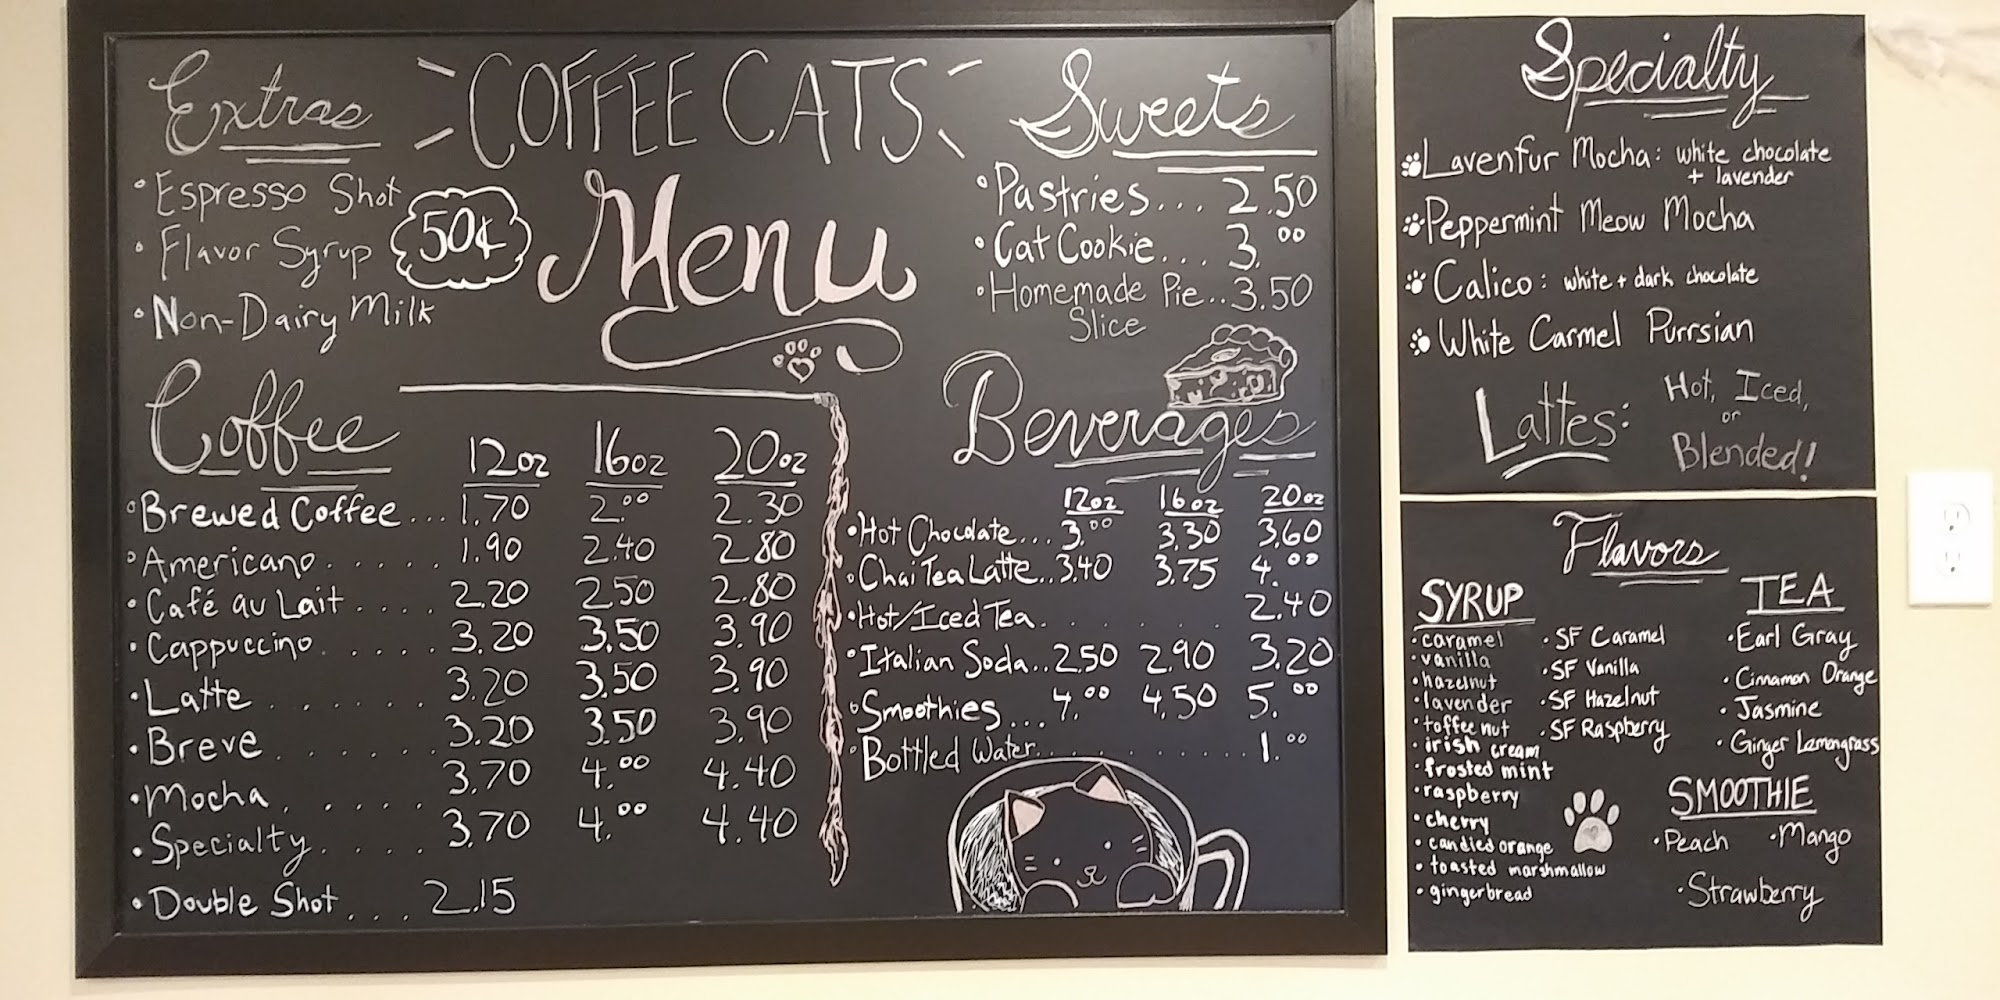 COFFEE CATS
Menu
Extras
• Espresso Shot
• Flavor Syrup
• Non-Dairy Milk
50¢
Coffee
12oz 16oz 20oz
• Brewed Coffee... 1.70 2.00 2.30
• Americano..... 1.90 2.40 2.80
• Café au Lait.... 2.20 2.50 2.80
• Cappuccino..... 3.20 3.50 3.90
• Latte...... 3.20 3.50 3.90
• Breve...... 3.20 3.50 3.90
• Mocha..... 3.70 4.00 4.40
• Specialty.... 3.70 4.00 4.40
• Double Shot... 2.15
Sweets
• Pastries... 2.50
• Cat Cookie... 3.00
• Homemade Pie.. 3.50
Slice
Beverages
12oz 16oz 20oz
• Hot Chocolate... 3.00 3.30 3.60
• Chai Tea Latte.. 3.40 3.75 4.00
• Hot/Iced Tea....... 2.40
• Italian Soda.. 2.50 2.90 3.20
• Smoothies... 4.00 4.50 5.00
• Bottled Water.......... 1.00
Specialty
Lavenfur Mocha: white chocolate
+ lavender
Peppermint Meow Mocha
Calico: white + dark chocolate
White Carmel Purrsian
Lattes: Hot, Iced,
or
Blended!
Flavors
SYRUP
• caramel
• vanilla
• hazelnut
• lavender
• toffee nut
• irish cream
• frosted mint
• raspberry
• cherry
• candied orange
• toasted marshmallow
• gingerbread
• SF Caramel
• SF Vanilla
• SF Hazelnut
• SF Raspberry
TEA
• Earl Gray
• Cinnamon Orange
• Jasmine
• Ginger Lemongrass
SMOOTHIE
• Peach • Mango
• Strawberry